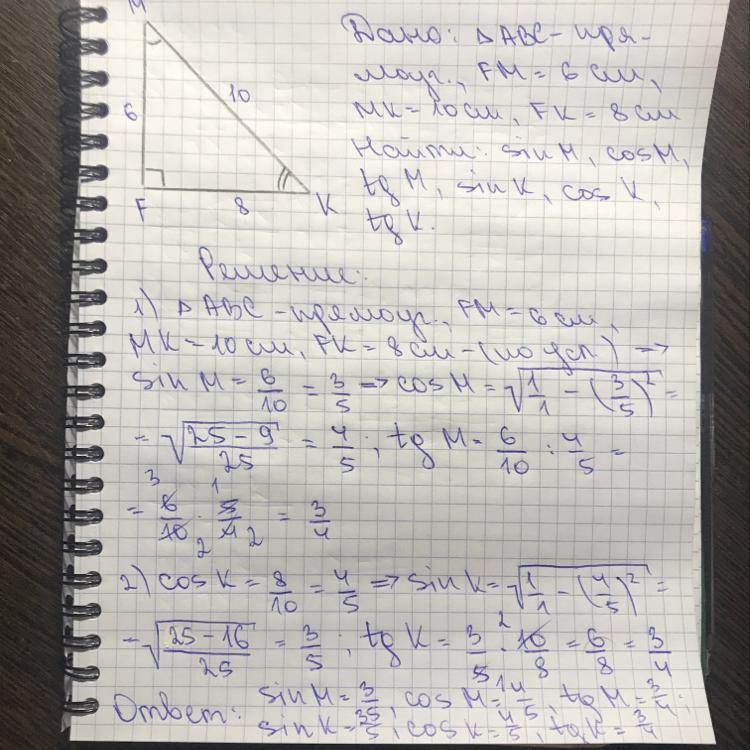 M
6
10
F
8
K
Дано: △ABC - пря-
моуг., FM = 6 см,
MK = 10 см, FK = 8 см
Найти: sin M, cos M,
tg M, sin K, cos K,
tg K.
Решение:
1) △ABC - прямоуг., FM = 6 см,
MK = 10 см, FK = 8 см - (по усл.) =>
sin M = 6/10 = 3/5 => cos M = √(1/1 - (3/5)²) =
= √((25 - 9)/25) = 4/5; tg M = 6/10 : 4/5 =
= 6/10 · 5/4 = 3/4
3 1 2 2
2) cos K = 8/10 = 4/5 => sin K = √(1/1 - (4/5)²) =
= √((25 - 16)/25) = 3/5; tg K = 3/5 · 10/8 = 6/8 = 3/4
2
Ответ: sin M = 3/5, cos M = 4/5, tg M = 3/4;
sin K = 3/5, cos K = 4/5, tg K = 3/4